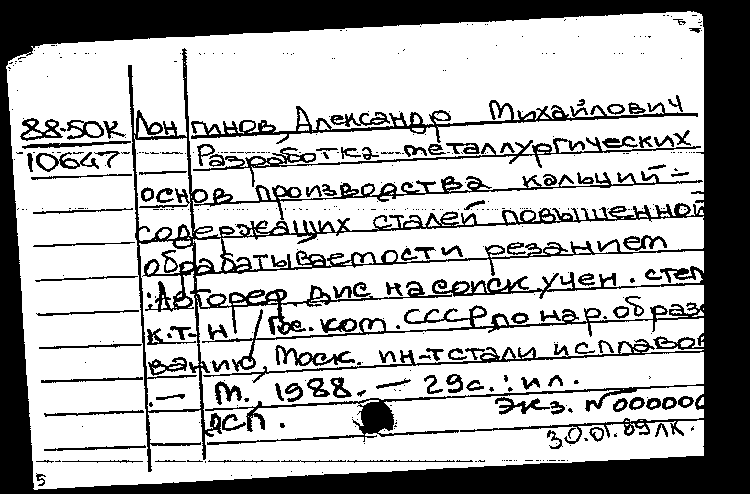 88-50К Лонгинов, Александр Михайлович
10647 Разработка металлургических
основ производства кальций-
содержащих сталей повышенной
обрабатываемости резанием
:Автореф. дис. на соиск. учен. степ
к.т.н! Гос. ком. СССР по нар. образо
ванию, Моск. ин-т стали и сплавов
.— М., 1988. — 29с. : ил.
ДСП. Экз. №000000
30.01.89 ЛК.
5